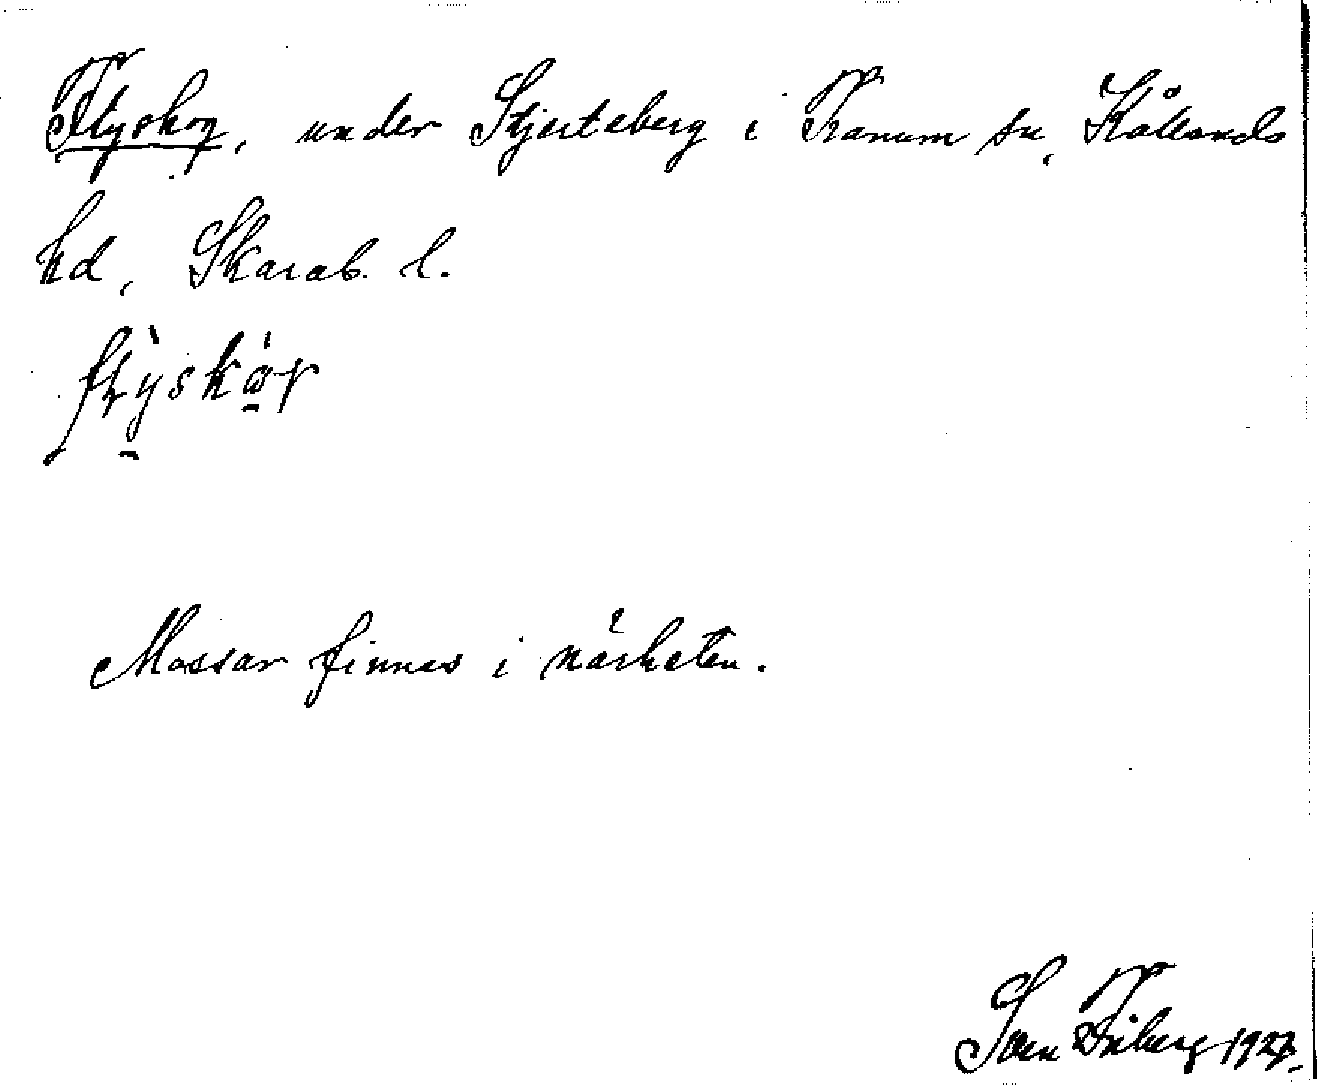 Flyskog, under Stjerteberg i Tranum sn, Kållands
hd, Skarab. l.
Mossar finnes i närheten.
Sven Friberg 1927.